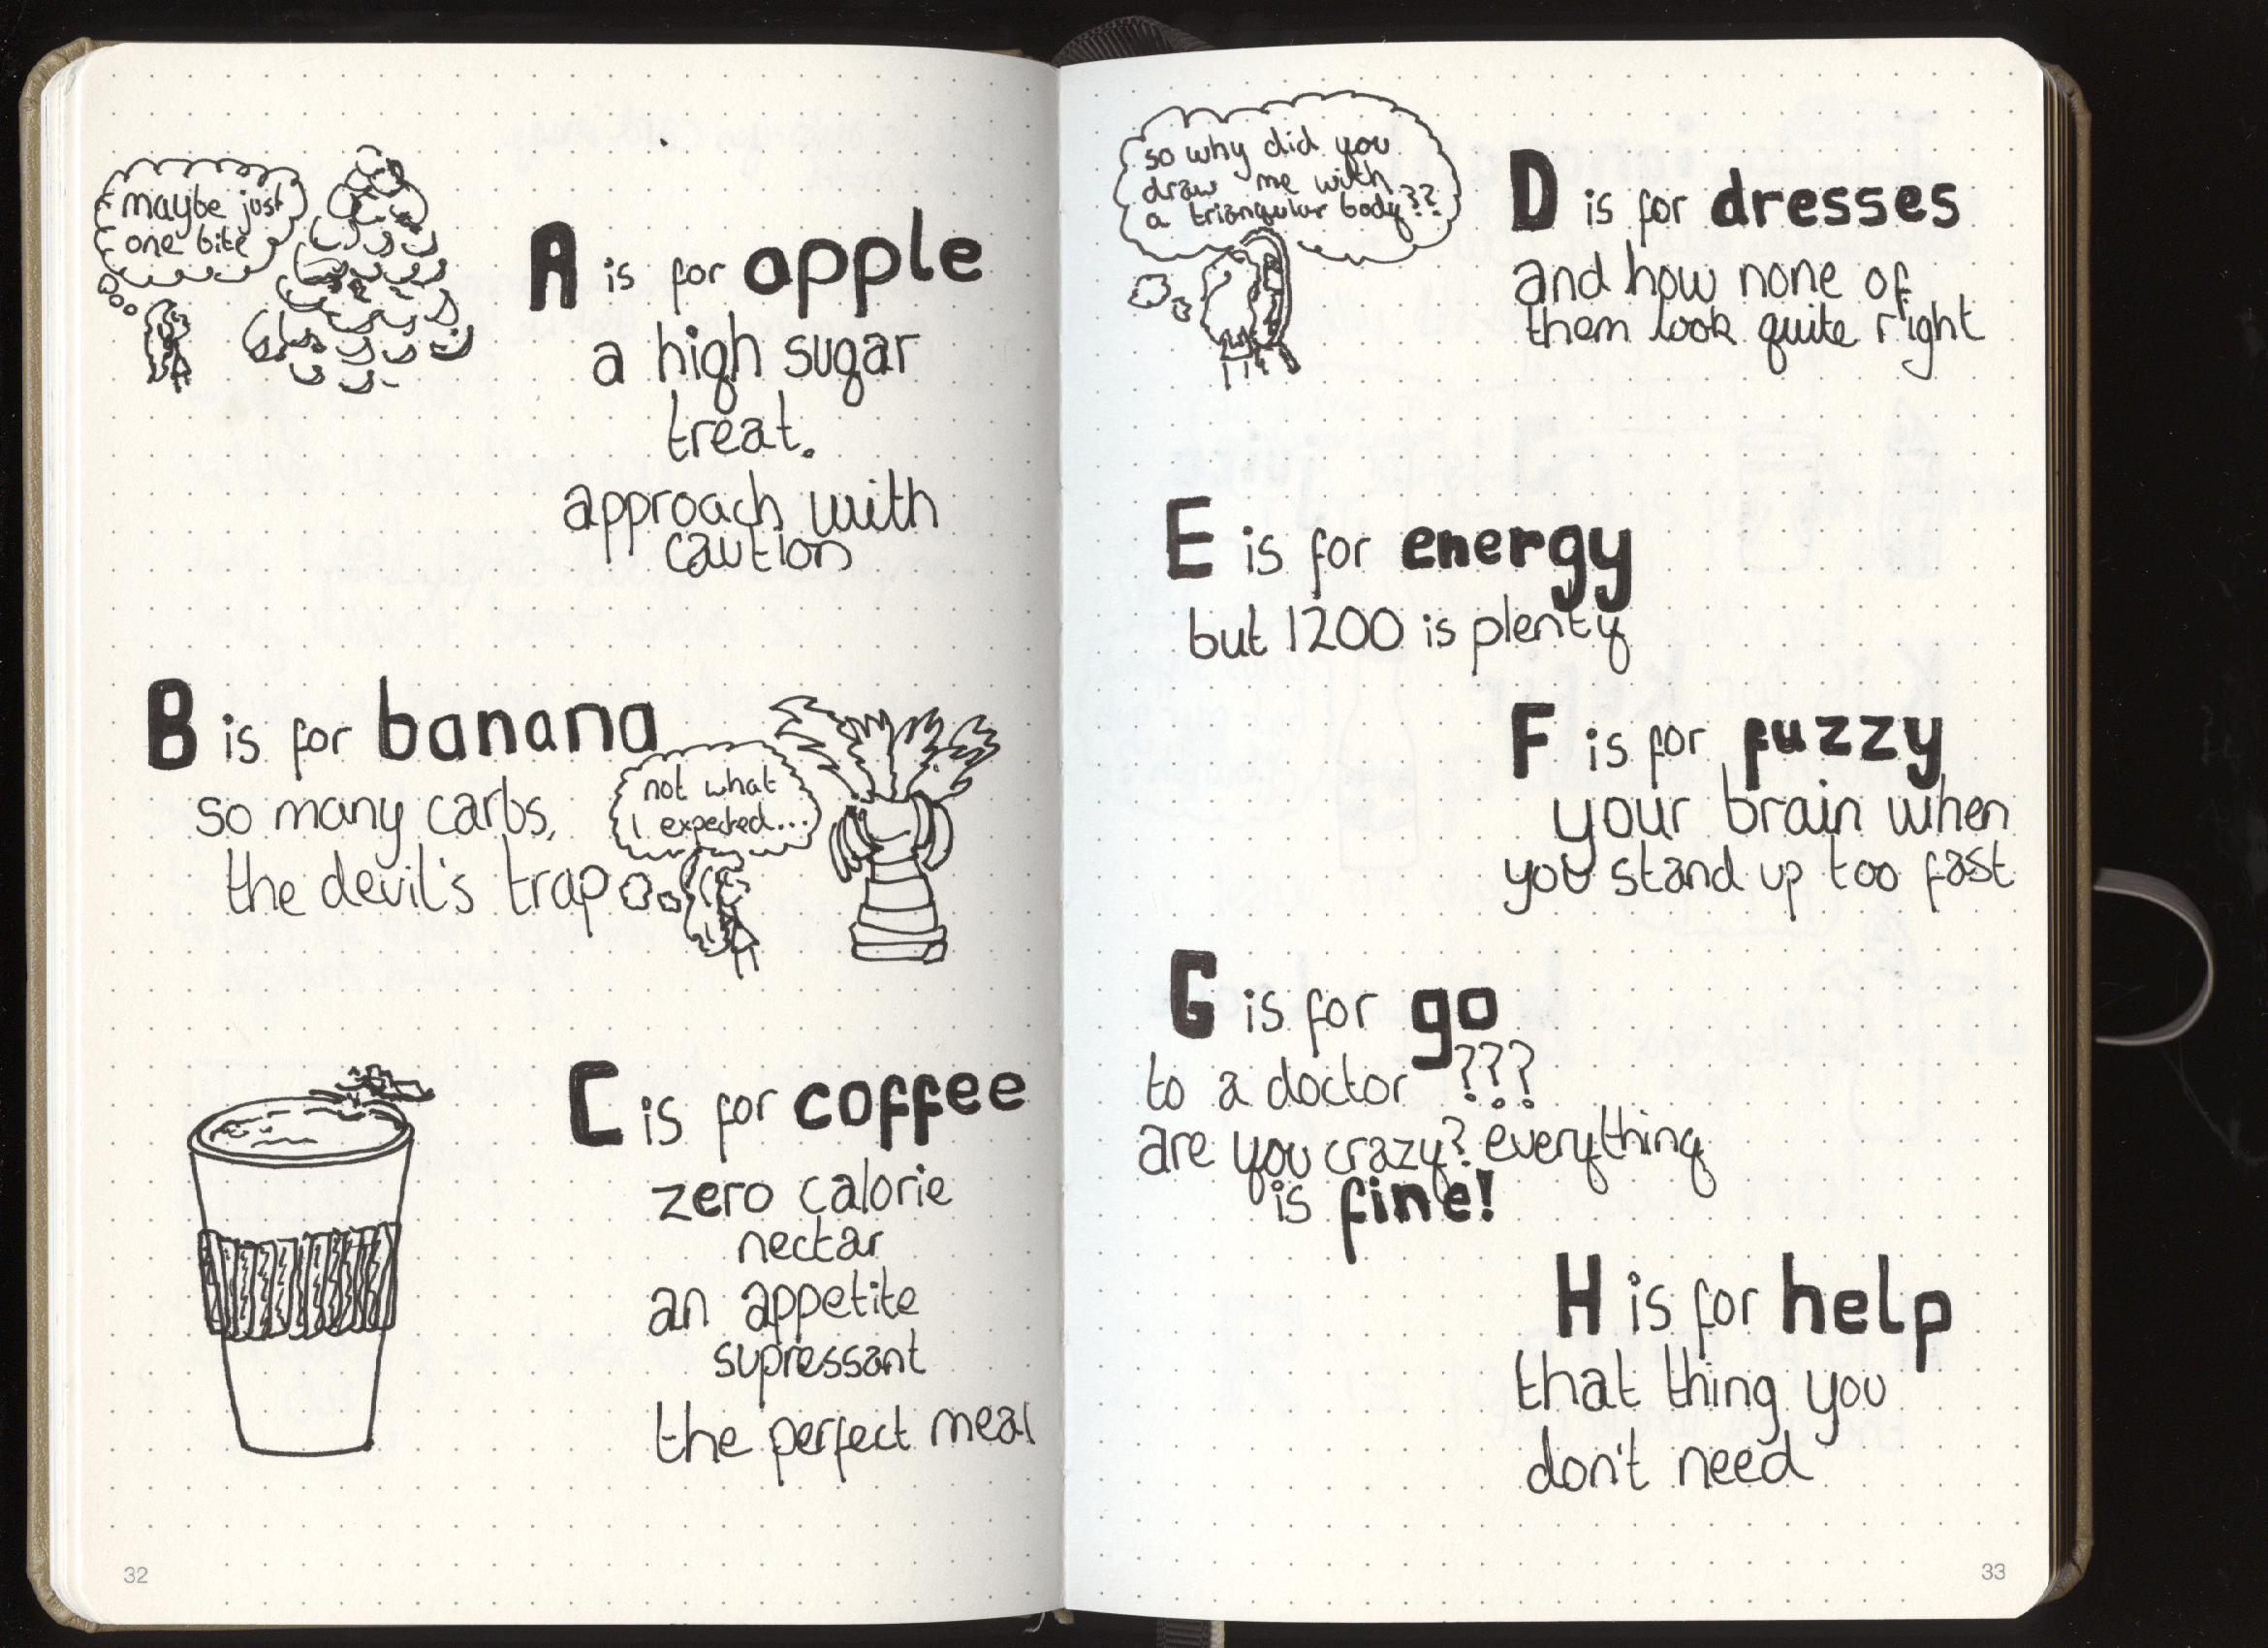 maybe just
one bite
A is for apple
a high sugar
treat.
approach with
caution
B is for banana
so many carbs,
the devil's trap
not what
I expected...
C is for coffee
zero calorie
nectar
an appetite
supressant
the perfect meal
32
so why did you
draw me with
a triangular body??
D is for dresses
and how none of
them look quite right
E is for energy
but 1200 is plenty
F is for fuzzy
your brain when
you stand up too fast
G is for go
to a doctor ???
are you crazy? everything
is fine!
H is for help
that thing you
don't need
33